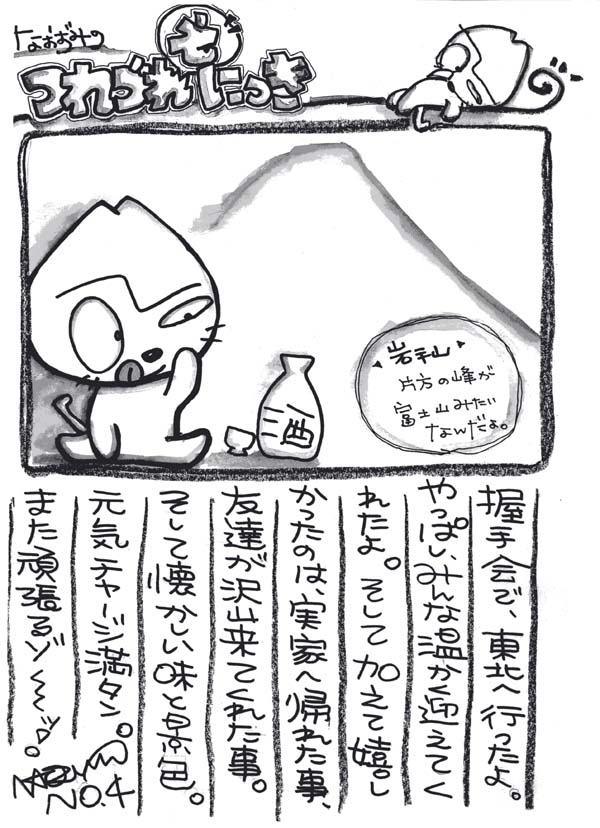 なおおみの
つれづれ
七
にっき
岩手山
片方の峰が
富士山みたい
なんだよ。
酒
握手会で、東北へ行ったよ。
やっぱ、みんな温かく迎えてく
れたよ。そして加えて嬉し
かったのは、実家へ帰れた事、
友達が沢山来てくれた事。
そして懐かしい味と景色。
元気チャージ満タン。
また頑張るゾ〜〜ッ。
NO.4